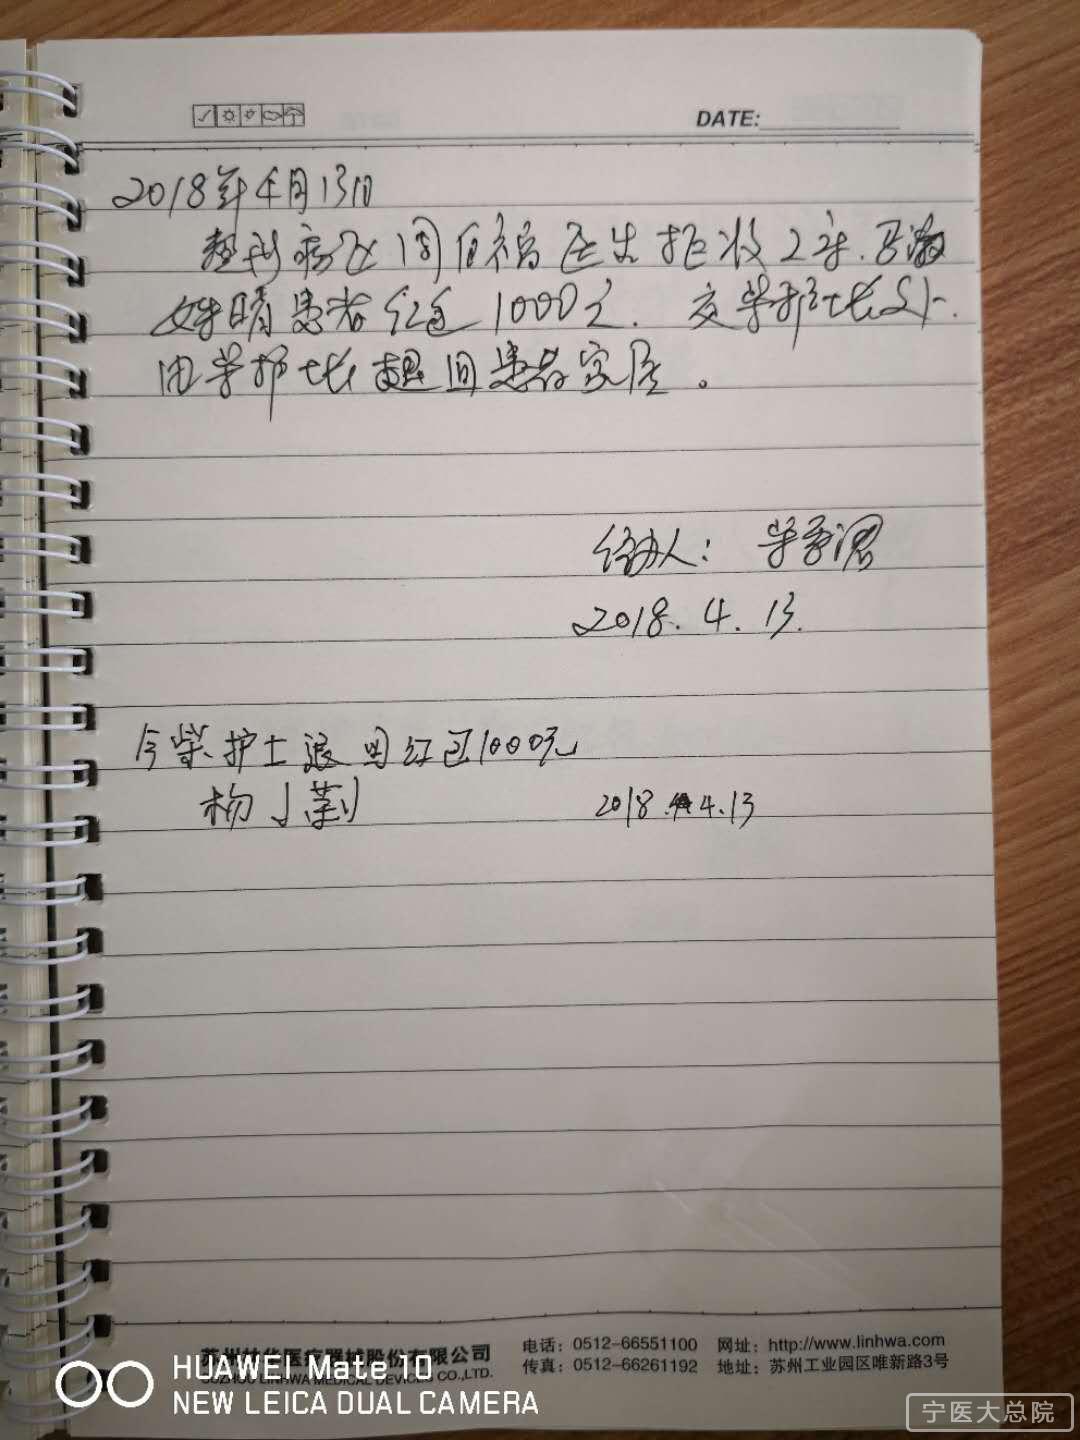 DATE:
2018年4月13日
整形病区周伯福医生拒收2床
患者红包1000元. 交柴护士长处.
由柴护士长退回患者家属。
经办人: 柴
2018. 4. 13.
今柴护士退回红包1000元
杨小莉 2018. 4.13
苏州林华医疗器械股份有限公司
SUZHOU LINHWA MEDICAL DEVICES CO.,LTD.
电话：0512-66551100 网址：http://www.linhwa.com
传真：0512-66261192 地址：苏州工业园区唯新路3号
HUAWEI Mate 10
NEW LEICA DUAL CAMERA
宁医大总院